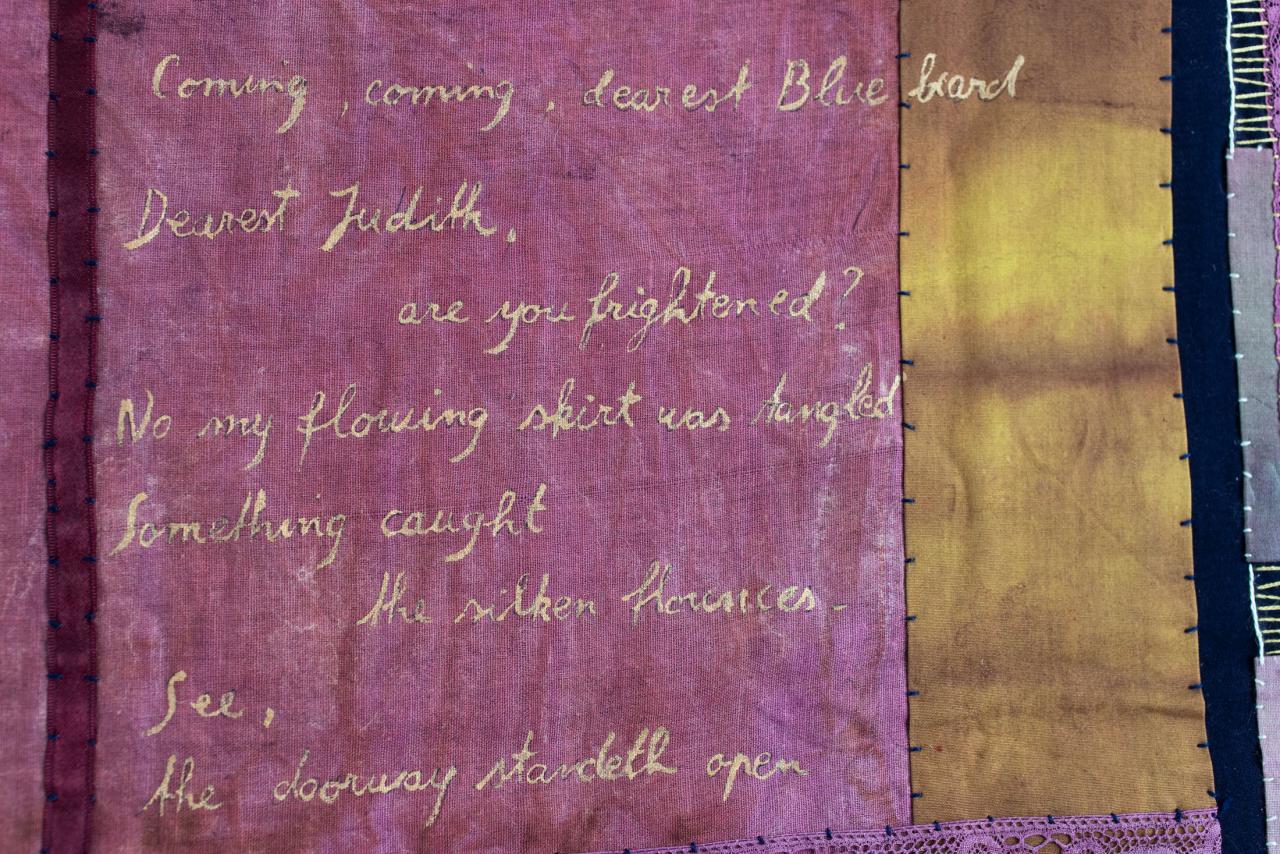 Coming, coming, dearest Blue beard
Dearest Judith,
are you frightened?
No my flowing skirt was tangled
Something caught
the silken flounces -
See,
the doorway standeth open